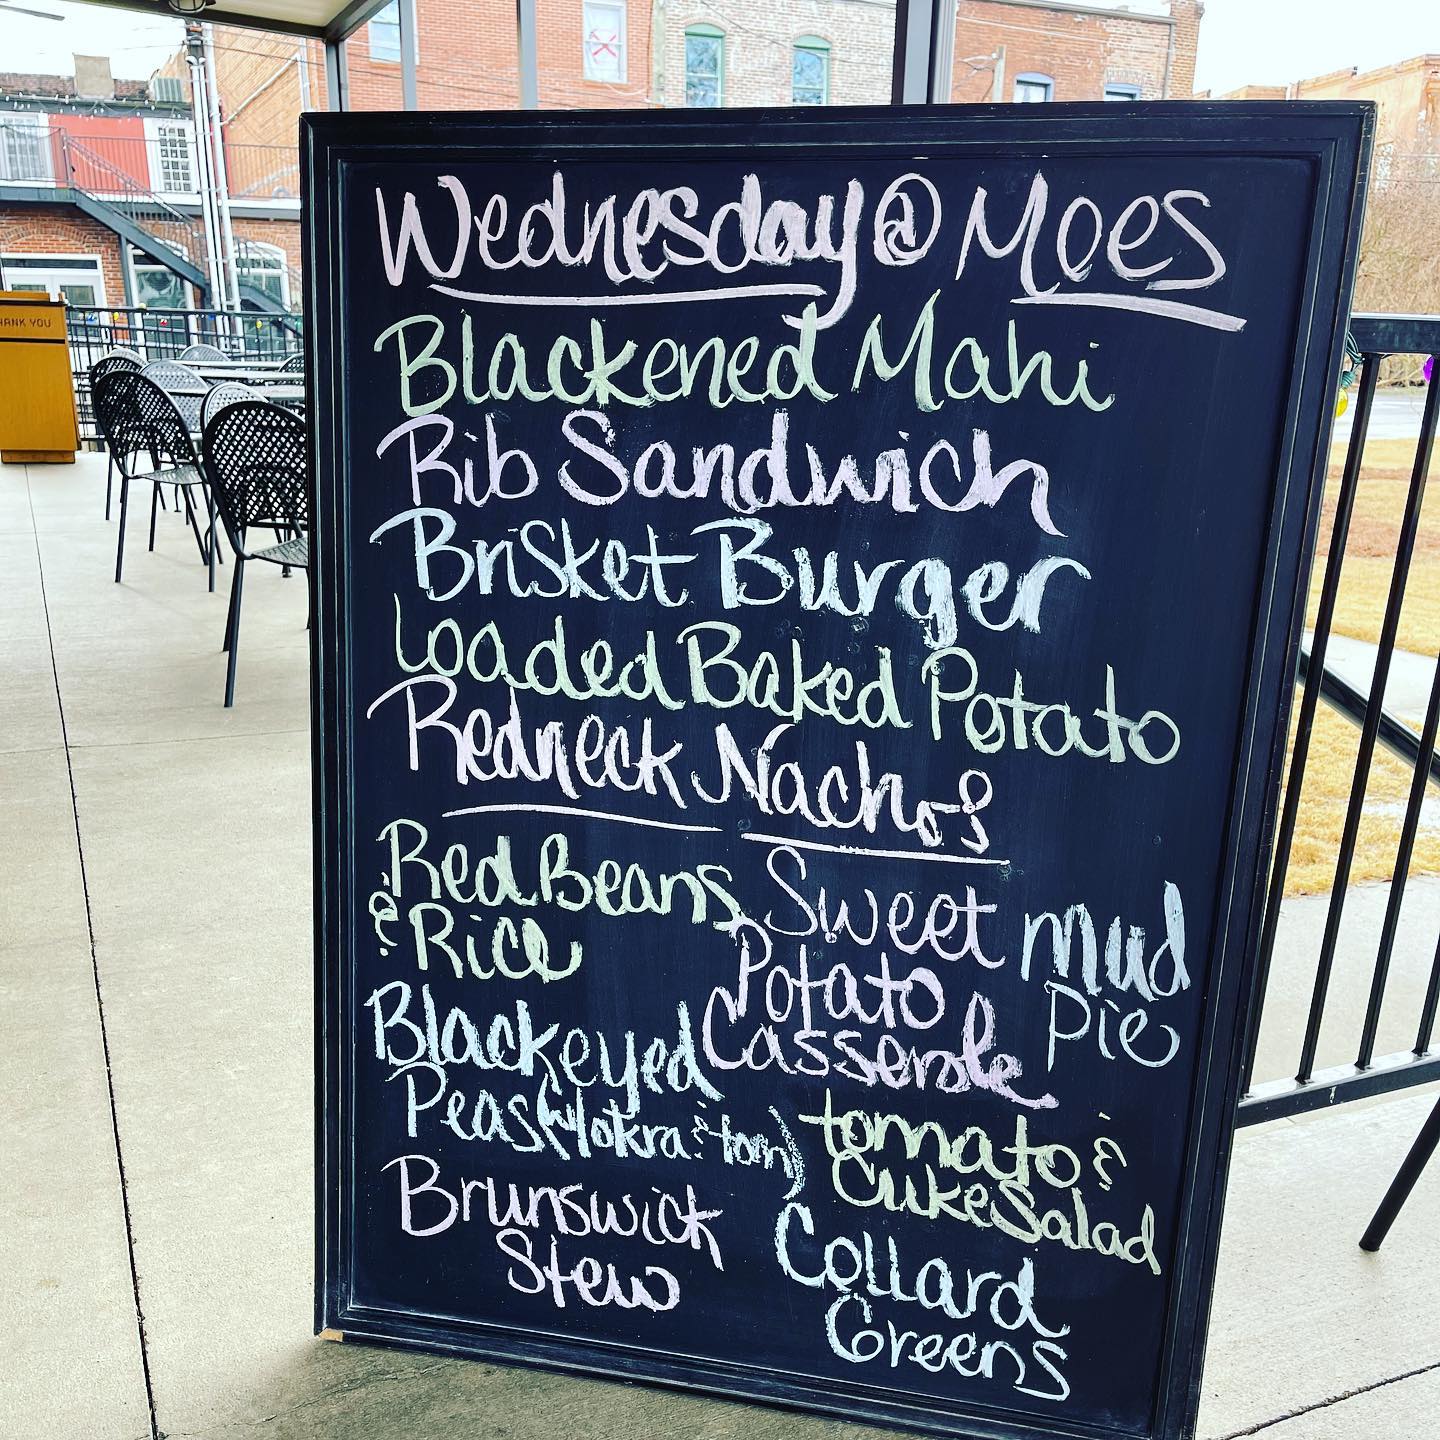 HANK YOU
Wednesday @ Moes
Blackened Mahi
Rib Sandwich
Brisket Burger
Loaded Baked Potato
Redneck Nachos
Red Beans
& Rice
Blackeyed
Peas (w/okra & tom)
Brunswick
Stew
Sweet
Potato
Casserole
Mud
Pie
tomato &
Cuke Salad
Collard
Greens